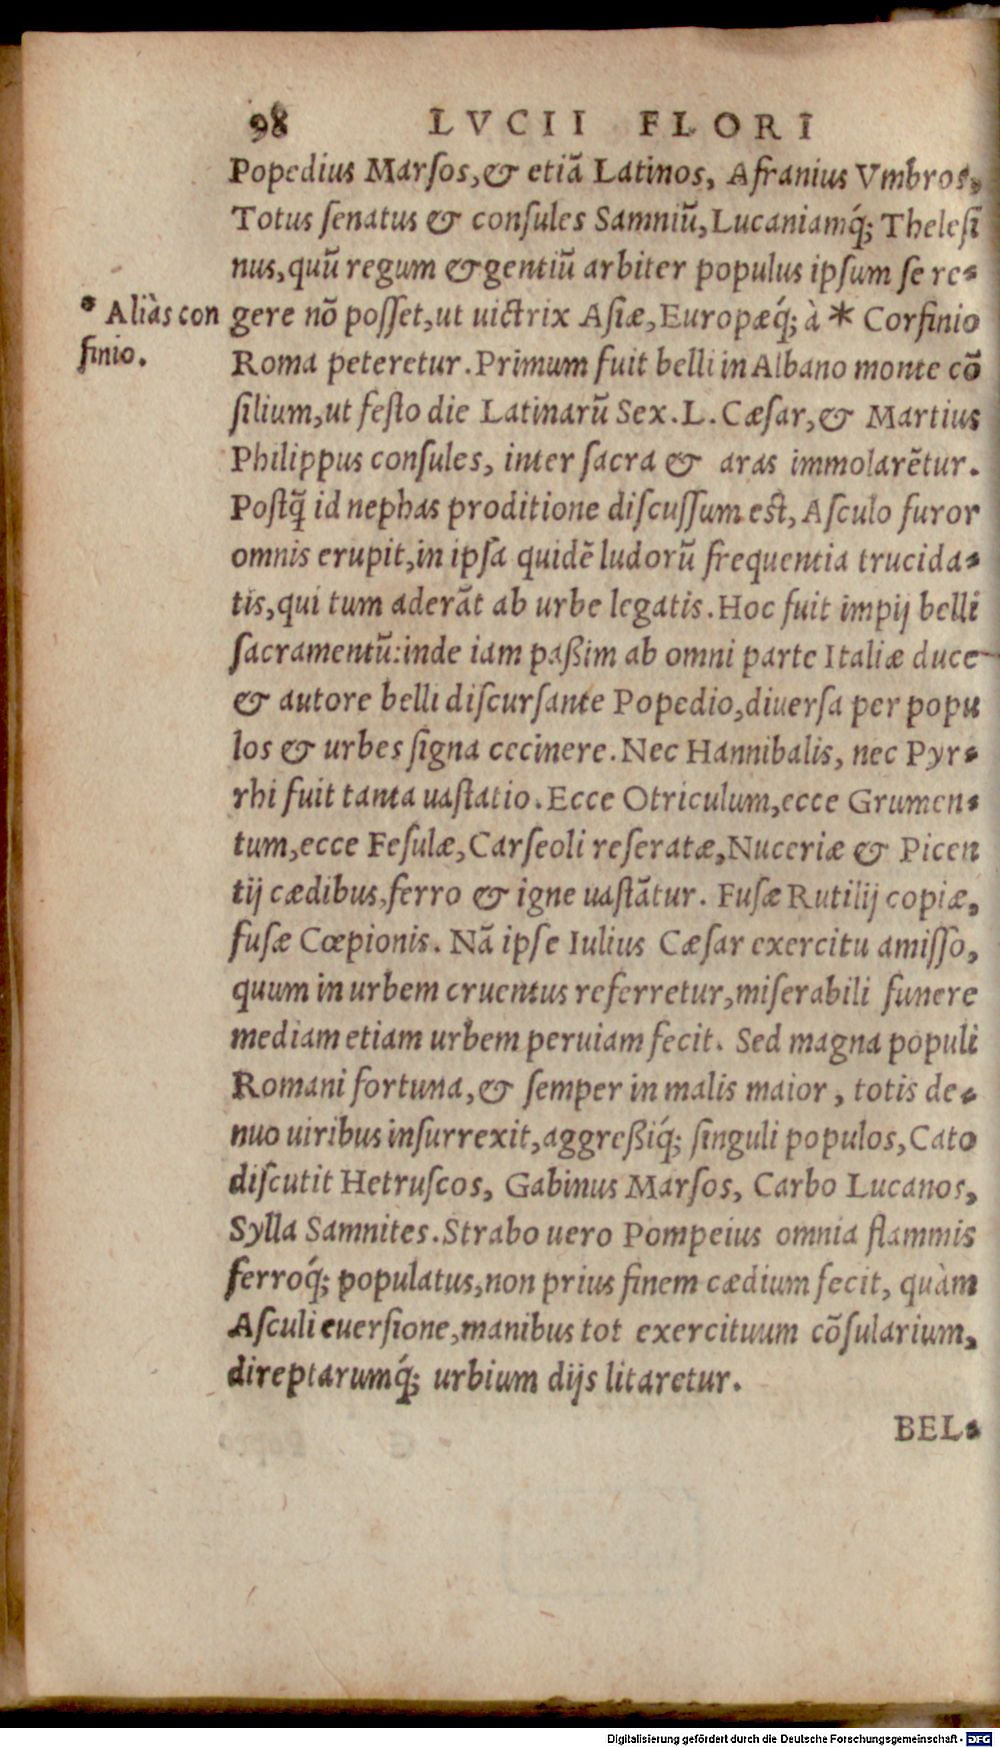 98 LVCII FLORI
Popedius Marsos, & etiã Latinos, Afranius Vmbros,
Totus senatus & consules Samniũ, Lucaniamq́; Thelesĩ
nus, quũ regum & gentiũ arbiter populus ipsum se re-
gere nõ posset, ut uictrix Asiæ, Europæq́; à * Corfinio
* Aliàs con
finio.
Roma peteretur. Primum fuit belli in Albano monte cõ
silium, ut festo die Latinarũ Sex. L. Cæsar, & Martius
Philippus consules, inter sacra & aras immolarẽtur.
Postq̃ id nephas proditione discussum est, Asculo furor
omnis erupit, in ipsa quidẽ ludorũ frequentia trucida-
tis, qui tum aderãt ab urbe legatis. Hoc fuit impij belli
sacramentũ: inde iam paßim ab omni parte Italiæ duce
& autore belli discursante Popedio, diuersa per popu
los & urbes signa cecinere. Nec Hannibalis, nec Pyr-
rhi fuit tanta uastatio. Ecce Otriculum, ecce Grumen-
tum, ecce Fesulæ, Carseoli reseratæ, Nuceriæ & Picen
tij cædibus, ferro & igne uastãtur. Fusæ Rutilij copiæ,
fusæ Cœpionis. Nã ipse Iulius Cæsar exercitu amisso,
quum in urbem cruentus referretur, miserabili funere
mediam etiam urbem peruiam fecit. Sed magna populi
Romani fortuna, & semper in malis maior, totis de-
nuo uiribus insurrexit, aggreßiq́; singuli populos, Cato
discutit Hetruscos, Gabinus Marsos, Carbo Lucanos,
Sylla Samnites. Strabo uero Pompeius omnia flammis
ferroq́; populatus, non prius finem cædium fecit, quàm
Asculi euersione, manibus tot exercituum cõsularium,
direptarumq́; urbium dijs litaretur.
BEL-
Digitalisierung gefördert durch die Deutsche Forschungsgemeinschaft - DFG